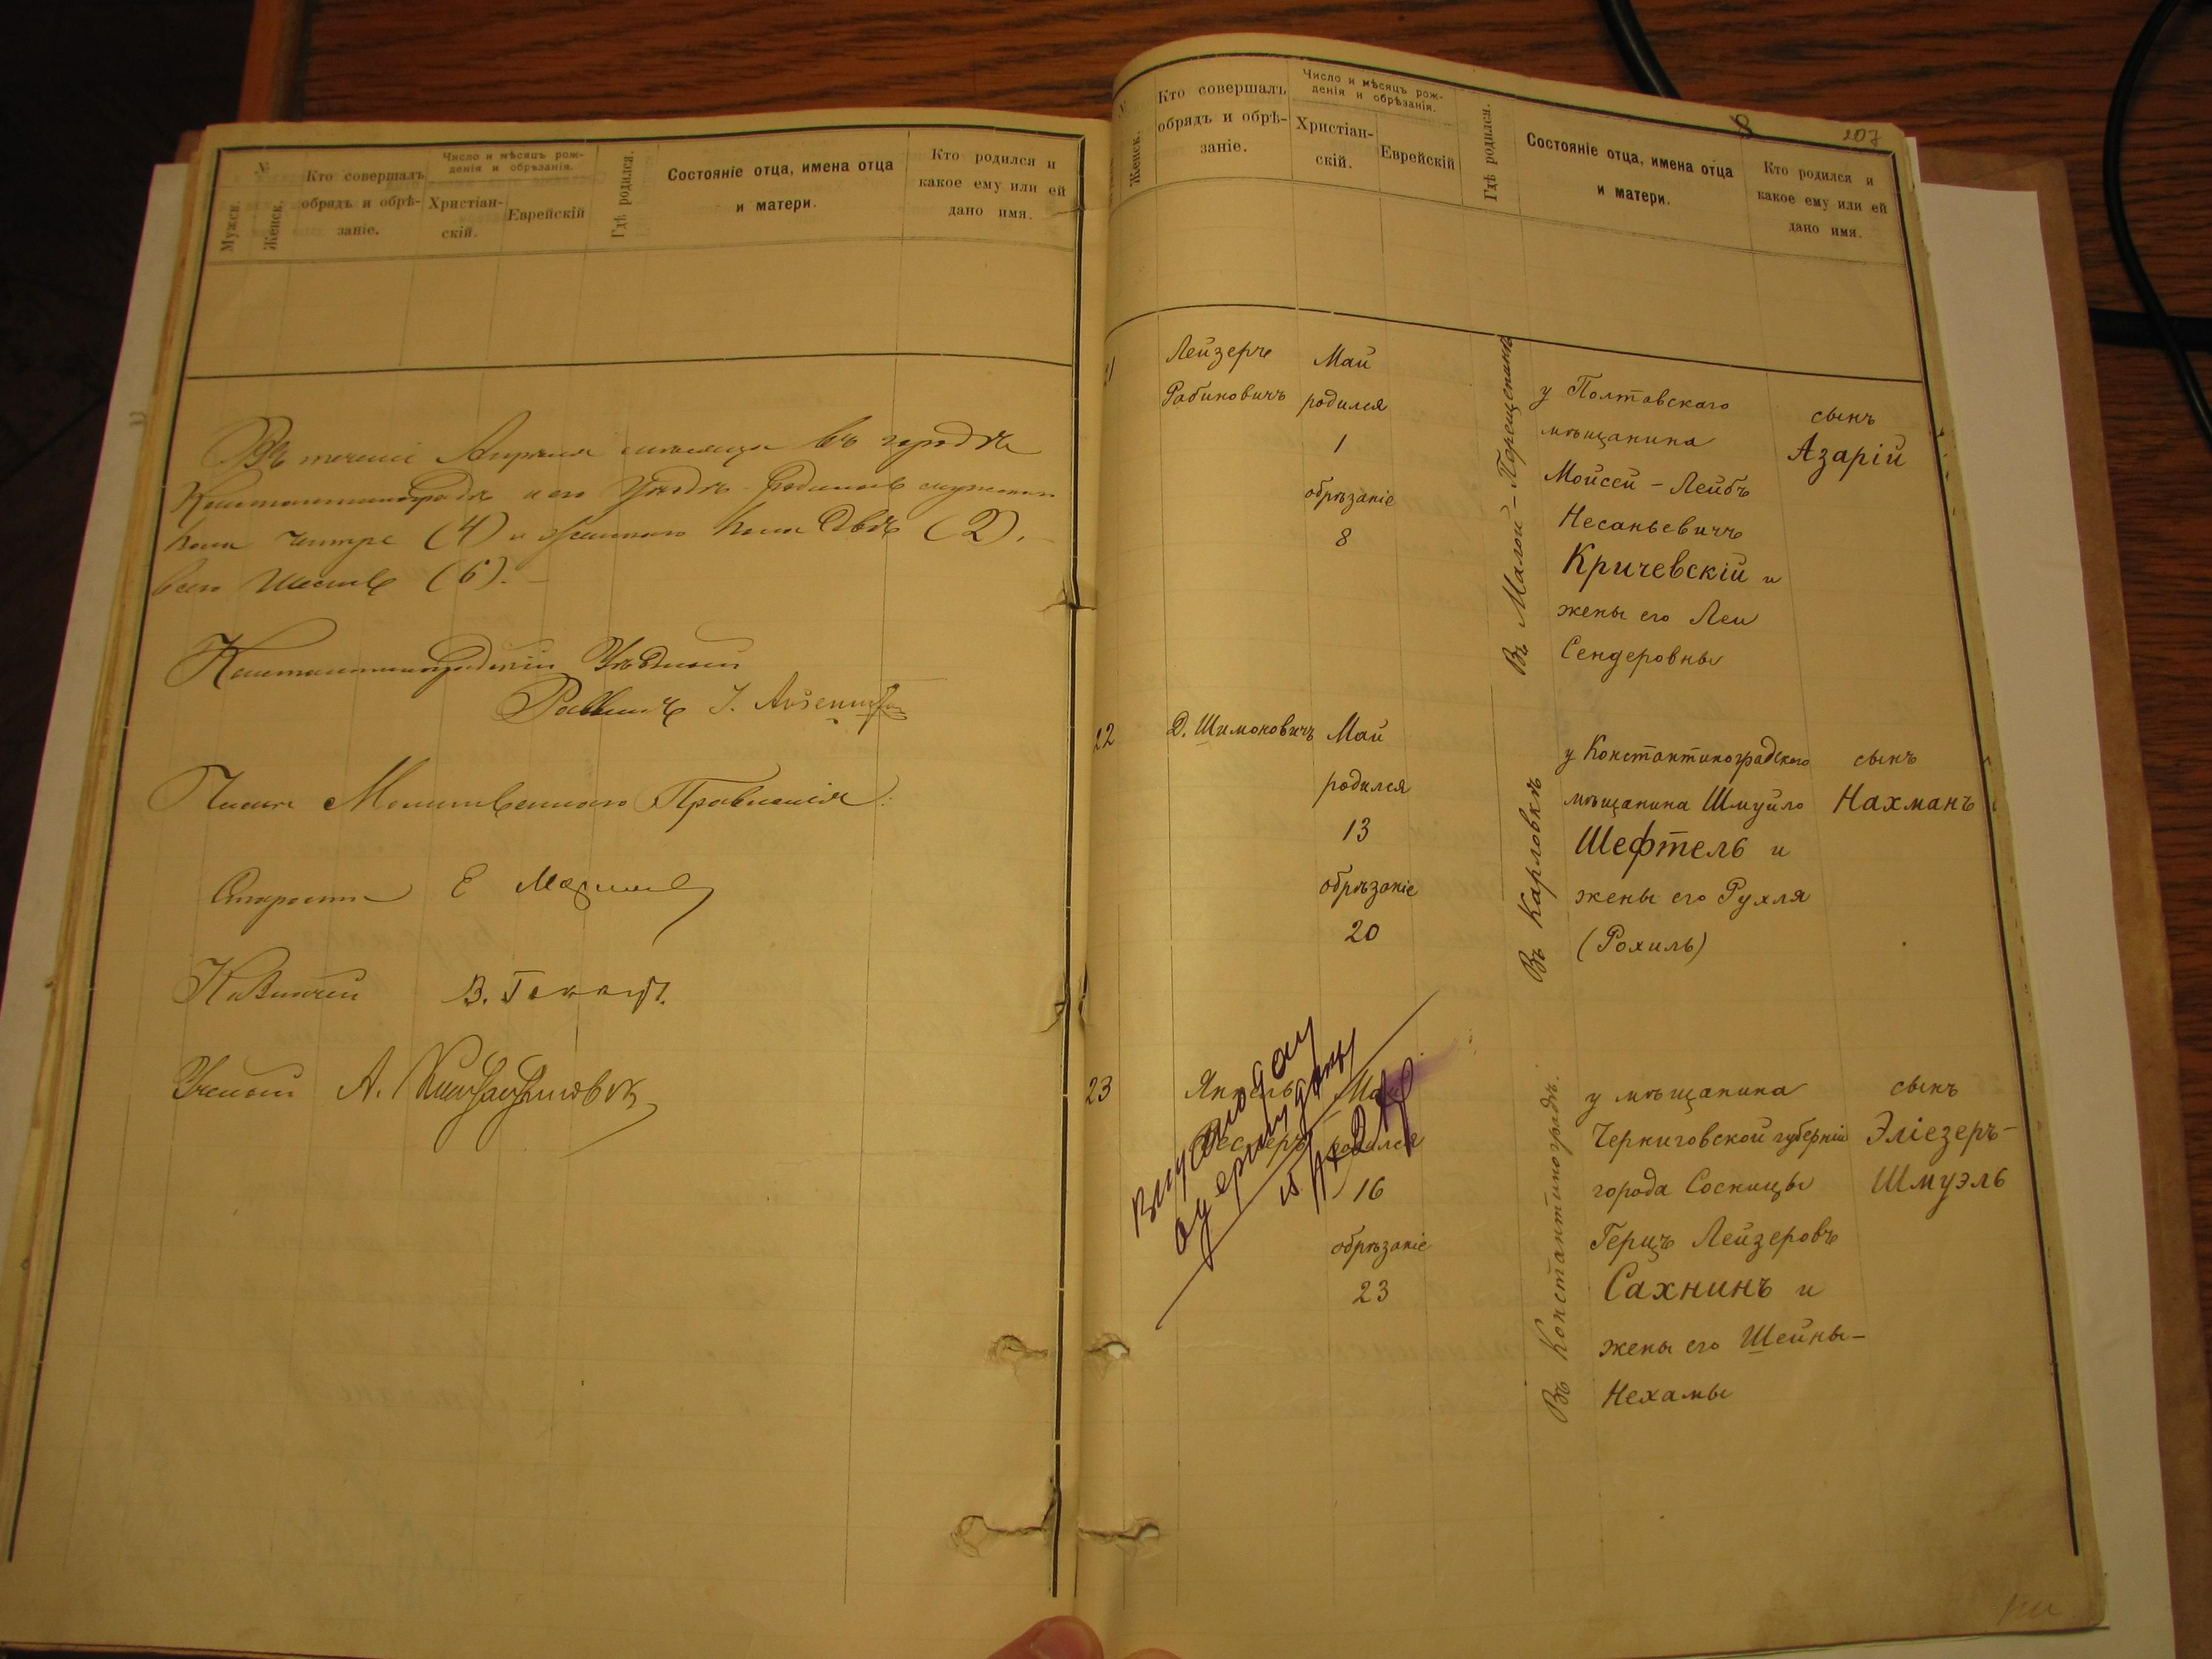 №
Мужск.
Женск.
Кто совершалъ
обрядъ и обрѣ-
заніе.
Число и мѣсяцъ рож-
денія и обрѣзанія.
Христіан-
скій.
Еврейскій
Гдѣ родился.
Состояніе отца, имена отца
и матери.
Кто родился и
какое ему или ей
дано имя.
Въ теченіи Апрѣля мѣсяца въ городѣ
Константиноградѣ и его Уѣздѣ родилось мужского
пола четыре (4) и женского пола двѣ (2).
всего шесть (6). –
Константиноградскій Уѣздный
Раввинъ
Члены Молитвеннаго Правленія:
Староста Е
Казначей В.
Ученый А.
Женск.
Кто совершалъ
обрядъ и обрѣ-
заніе.
Число и мѣсяцъ рож-
денія и обрѣзанія.
Христіан-
скій.
Еврейскій
Гдѣ родился.
Состояніе отца, имена отца
и матери.
Кто родился и
какое ему или ей
дано имя.
8
207
21
Лейзеръ
Рабиновичъ
Май
родился
1
обрѣзаніе
8
Въ Малой-Перещепинѣ
у Полтавскаго
мѣщанина
Мойсей-Лейбъ
Несаньевичъ
Кричевскій и
жены его Леи
Сендеровны
сынъ
Азарій
22
Д. Шимоновичъ
Май
родился
13
обрѣзаніе
20
Въ Карловкѣ
у Константиноградского
мѣщанина Шмуйло
Шефтель и
жены его Рухля
(Рохиль)
сынъ
Нахманъ
23
Май
родился
16
обрѣзаніе
23
Въ Константиноградѣ.
у мѣщанина
Черниговской губерніи
города Сосницы
Герцъ Лейзеровъ
Сахнинъ и
жены его Шейны-
Нехамы
сынъ
Эліезеръ-
Шмуэль